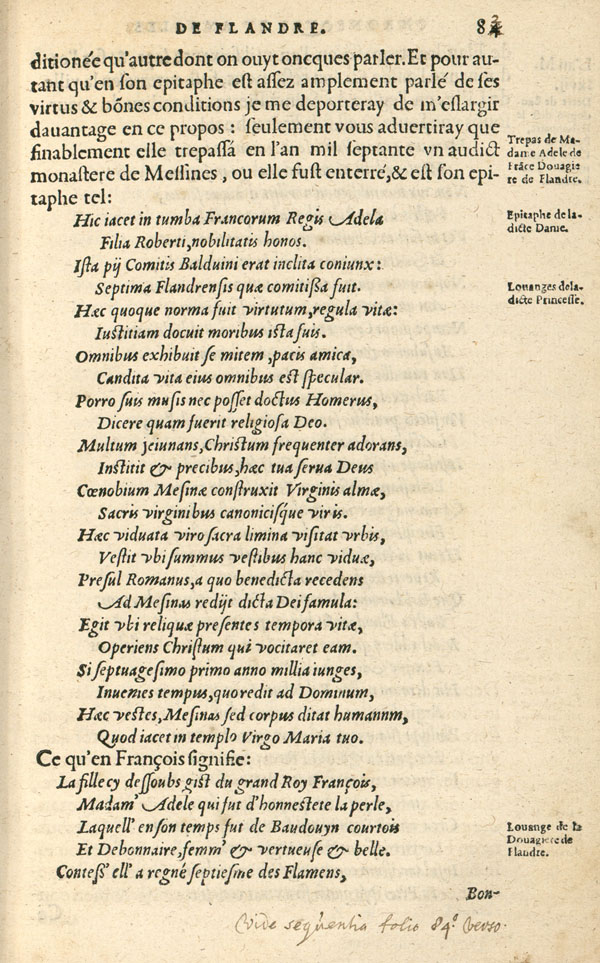 DE FLANDRE. 82
ditionée qu'autre dont on ouyt oncques parler. Et pour au-
tant qu'en son epitaphe est assez amplement parlé de ses
virtus & bōnes conditions je me deporteray de m'eslargir
dauantage en ce propos : seulement vous aduertiray que
finablement elle trepassa en l'an mil septante vn audict
monastere de Messines, ou elle fust enterré, & est son epi-
taphe tel:
Trepas de Ma-
dame Adele de
Frāce Douagie
re de Flandre.
Hic iacet in tumba Francorum Regis Adela
Filia Roberti, nobilitatis honos.
Epitaphe de la-
dicte Dame.
Ista pij Comitis Balduini erat inclita coniunx:
Septima Flandrensis quæ comitissa fuit.
Louanges dela-
dicte Princesse.
Hæc quoque norma fuit virtutum, regula vitæ:
Iustitiam docuit moribus ista suis.
Omnibus exhibuit se mitem, pacis amica,
Candita vita eius omnibus est specular.
Porro suis musis nec posset doctus Homerus,
Dicere quam fuerit religiosa Deo.
Multum jeiunans, Christum frequenter adorans,
Institit & precibus, hæc tua serua Deus
Cœnobium Mesinæ construxit Virginis almæ,
Sacris virginibus canonicisque viris.
Hæc viduata viro sacra limina visitat vrbis,
Vestit vbi summus vestibus hanc viduæ,
Presul Romanus, a quo benedicta recedens
Ad Mesinas redijt dicta Dei famula:
Egit vbi reliquæ presentes tempora vitæ,
Operiens Christum qui vocitaret eam.
Si septuagesimo primo anno millia iunges,
Inuenies tempus, quo redit ad Dominum,
Hæc vestes, Mesinas sed corpus ditat humannm,
Quod iacet in templo Virgo Maria tuo.
Ce qu'en François signifie:
La fille cy dessoubs gist du grand Roy François,
Madam' Adele qui fut d'honnestete la perle,
Laquell' en son temps fut de Baudouyn courtois
Et Debonnaire, femm' & vertueuse & belle.
Louange de la
Douagiere de
Flandre.
Contess' ell' a regné septiesme des Flamens,
Bon-
Vide sequentia folio 84º verso.